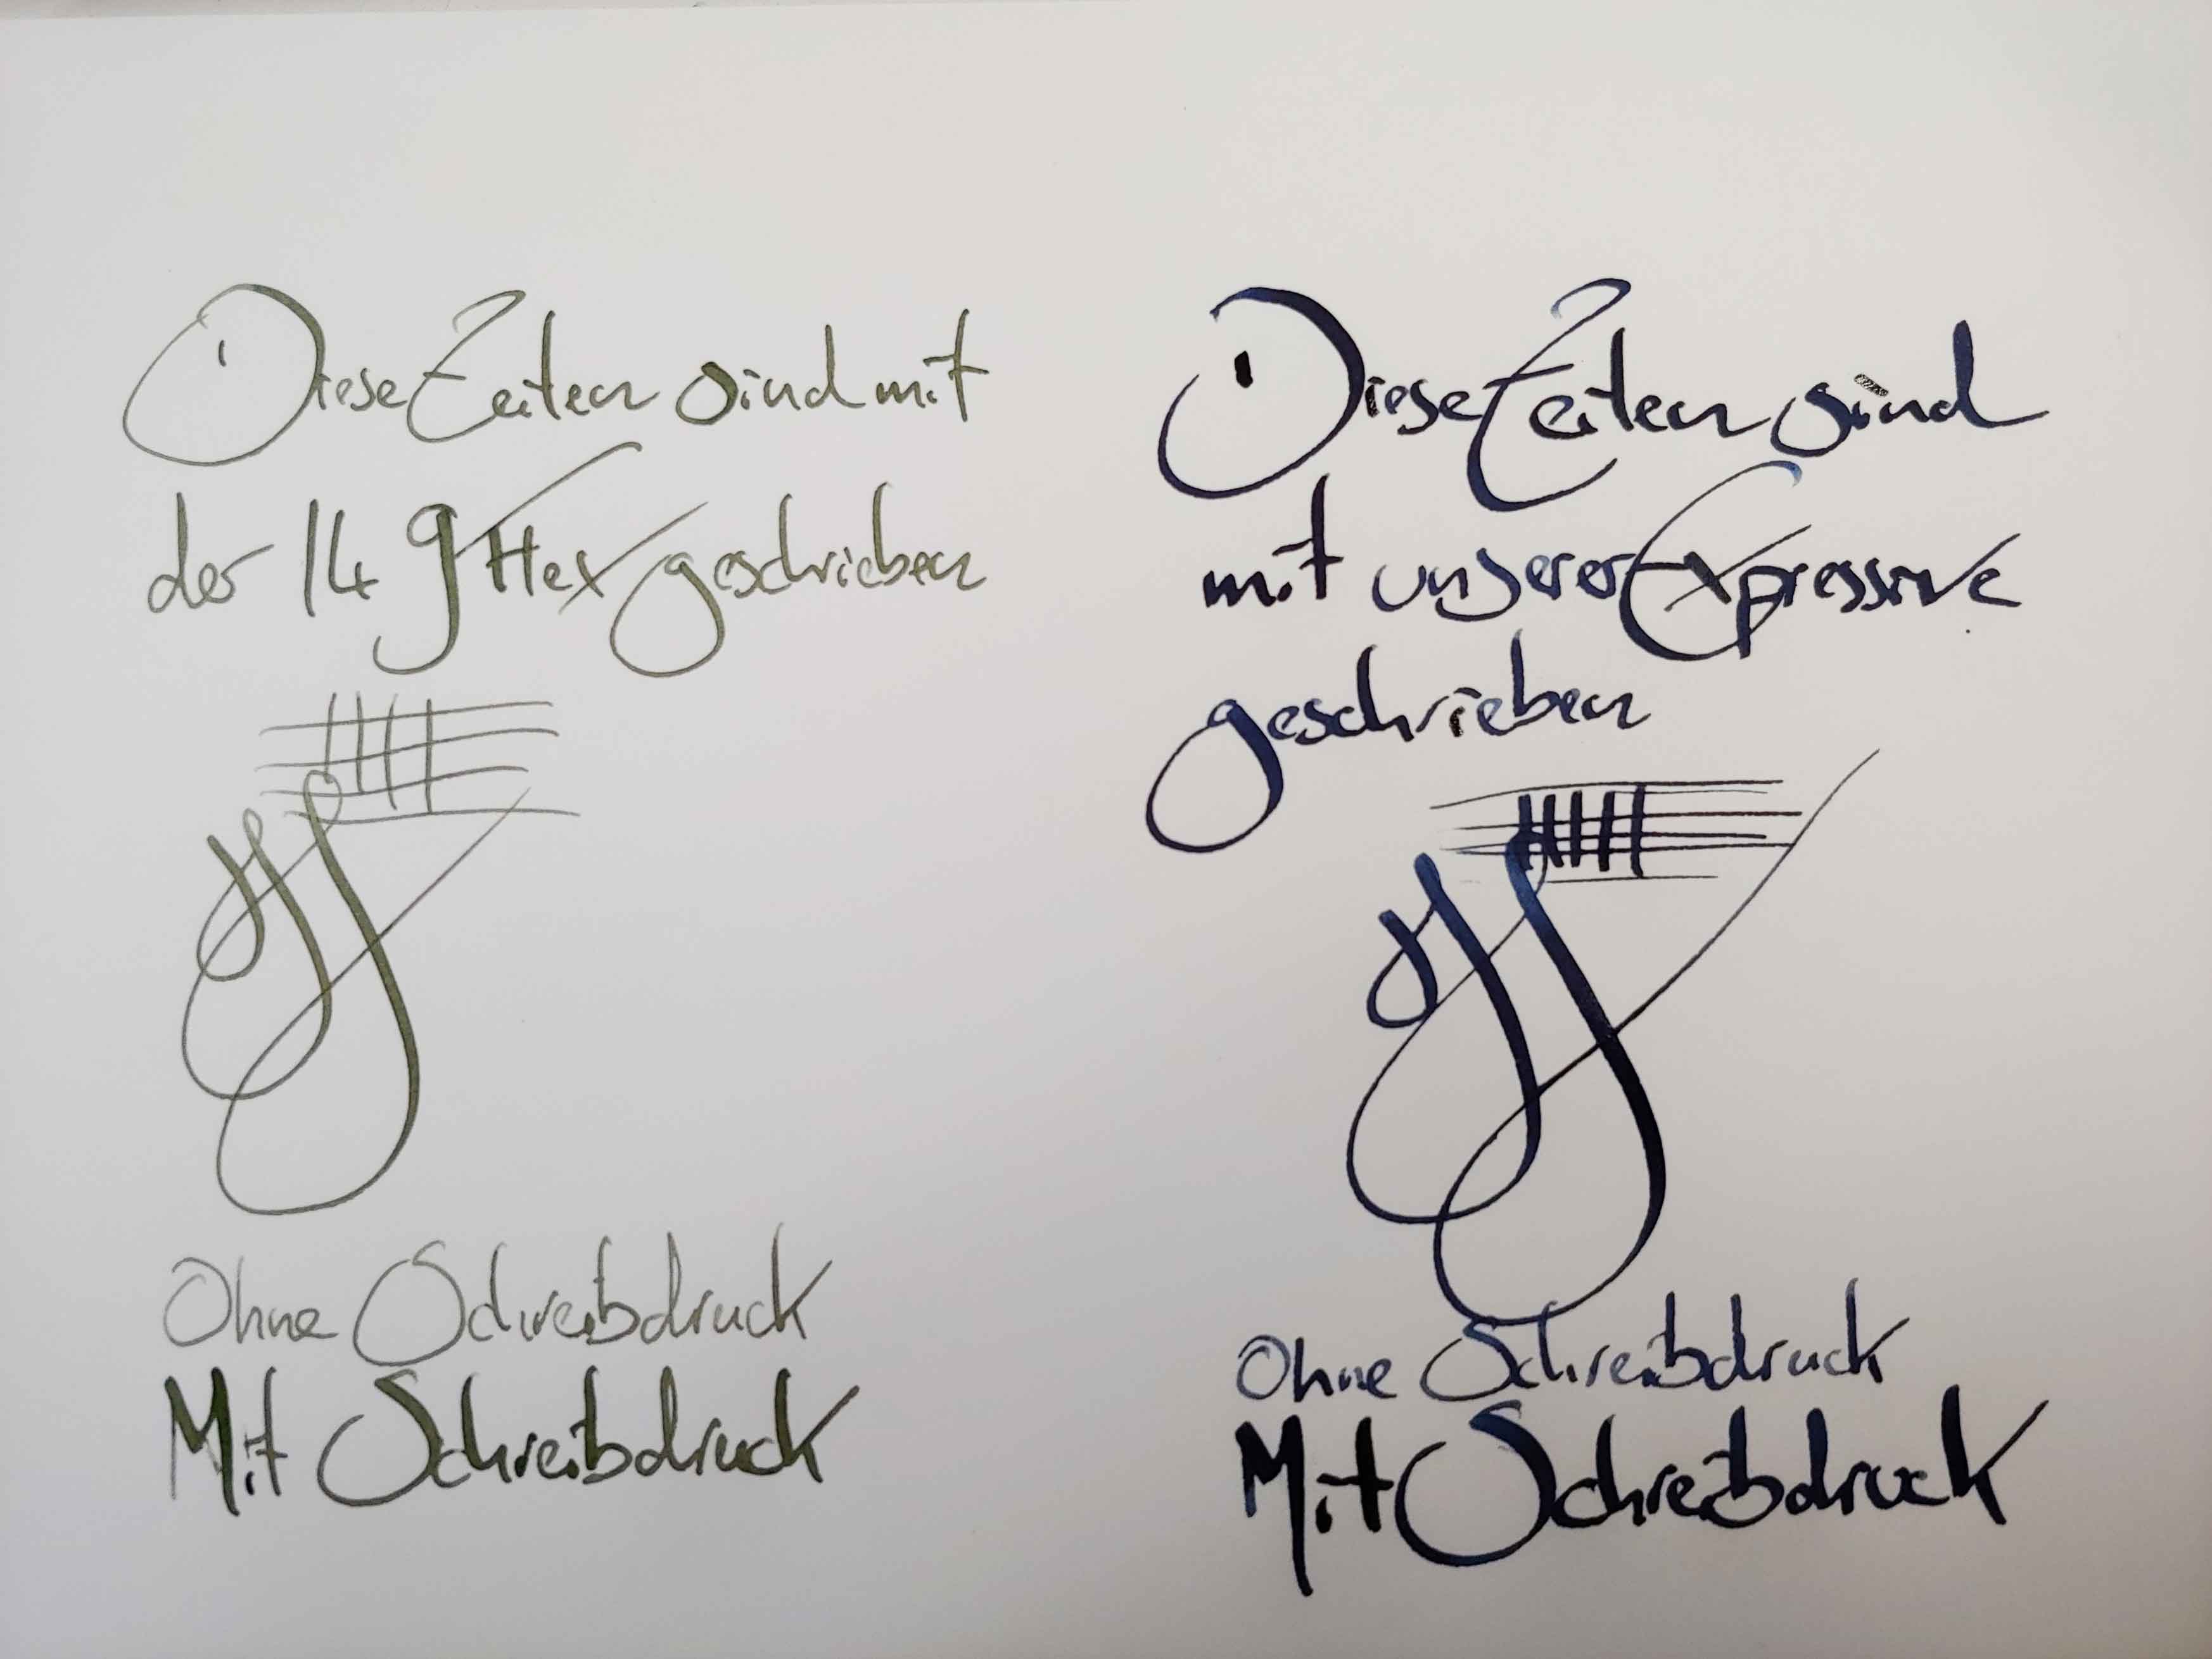 Diese Zeilen sind mit
der 14 g Flex geschrieben
Ohne Schreibdruck
Mit Schreibdruck
Diese Zeilen sind
mit unserer Expressive
geschrieben
Ohne Schreibdruck
Mit Schreibdruck